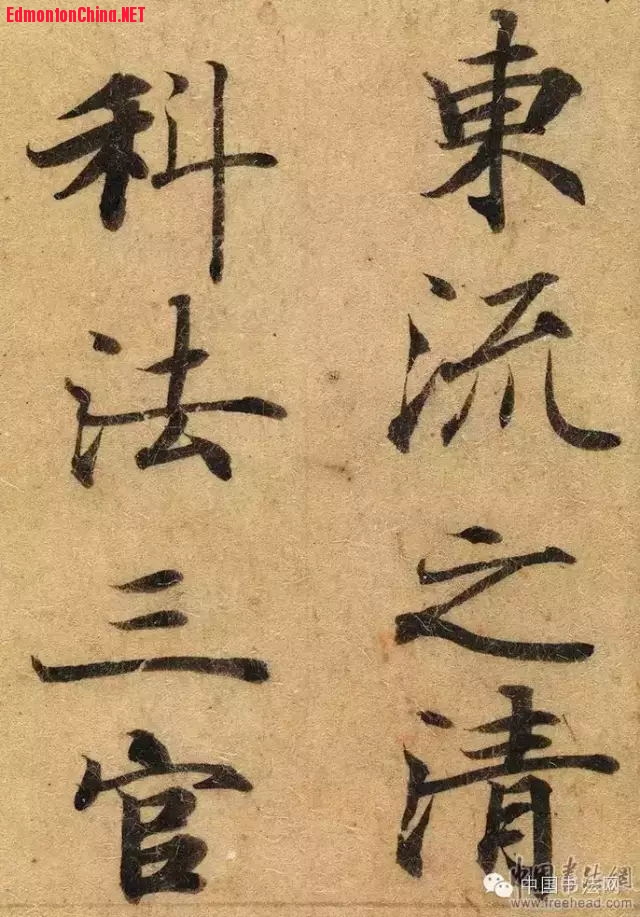 EdmontonChina.NET
東流之清
科法三官
中国书法网
www.freehead.com